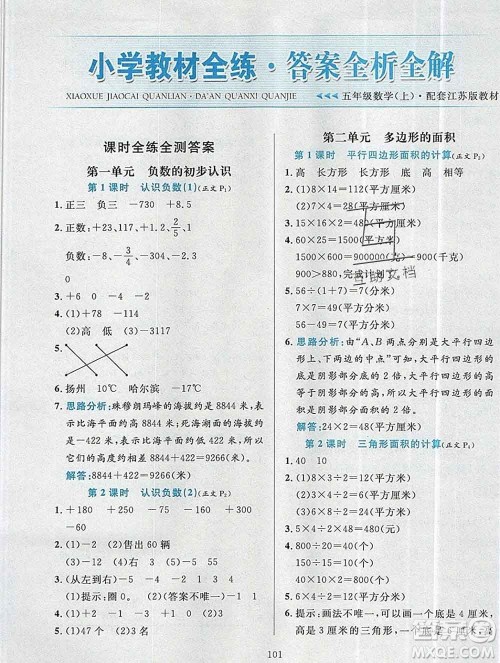 小学教材全练·答案全析全解
XIAOXUE JIAOCAI QUANLIAN·DA'AN QUANXI QUANJIE
五年级数学(上)·配套江苏版教材
课时全练全测答案
第一单元 负数的初步认识
第1课时 认识负数(1)(正文P₁)
1. 正三 负三 -730 +8844
2. 正数:+23,117,+1.2,2/5,1
负数:-8,-3/4,-155,-0.3
3. + - - +
4. (1)+78 -114
(2)高 低 -3
5.
6. 扬州 10℃ 哈尔滨 -17℃
7. 思路分析:珠穆朗玛峰的海拔约是8844米,表示比海平面高8844米;死海的海拔约是-422米,表示比海平面低422米,所以它们的高度大约相差8844+422=9266(米)。
解答:8844+422=9266(米)
第2课时 认识负数(2)(正文P₂)
1. +180 +150 - - + -
+350
2. (1)-2 (2)售出60箱
3. (从左到右)-4 -1 +3 +5
(1)5 (2)-1
提示:圈0。
4. (1)+1 (2)3名
第二单元 多边形的面积
第1课时 平行四边形面积的计算(正文P₃)
1. 高 长方形 长方形 底 高 相等
2. (1)8×14=112(平方厘米)
(2)7×4=28(平方厘米)
3. 15×16×2=480(平方厘米)
4. 60×25=1500(平方米)
1500×600=900000(克)=900(千克)
900>880,完成计划
5. (1+2.5)×2=7(分米)
7×7=49(平方分米)
56-49=7(平方分米)
6. 思路分析:由“A、B两点分别是大平行四边形上、下两边的中点”可知,大平行四边形的底是阴影部分底的2倍,大平行四边形的面积是阴影部分面积的2倍。
解答:24×2=48(平方米)
第2课时 三角形面积的计算(正文P₅)
1. 40 10
2. (1)8×3÷2=12(平方厘米)
(2)18×6÷2=54(平方厘米)
(3)16×24÷2=192(平方厘米)
3. 5×4÷2=10(平方分米)
800÷10=80(个)
4. 50÷5×(20÷5)=40(个)
5×5÷2×40=500(平方厘米)
5. 提示:画法不唯一,可以画一个底是4厘米,高是3厘米的三角形,或者画一个底是6厘米,高
101
互助文档
MXQE.COM